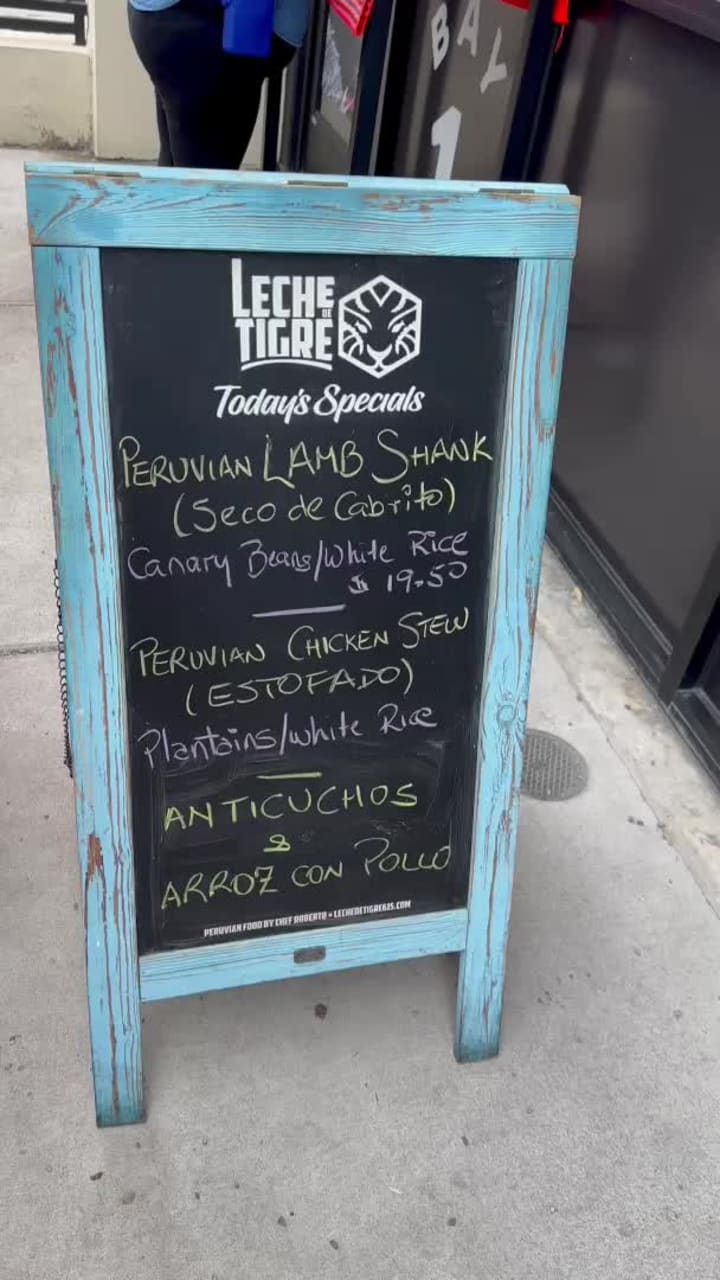 BAL
1
LECHE
DE
TIGRE
Today's Specials
PERUVIAN LAMB SHANK
(Seco de Cabrito)
Canary Beans/White Rice
$ 19.50
PERUVIAN CHICKEN STEW
(ESTOFADO)
Plantains/white Rice
ANTICUCHOS
&
ARROZ CON POLLO
PERUVIAN FOOD BY CHEF ROBERTO • LECHEDETIGRE615.COM